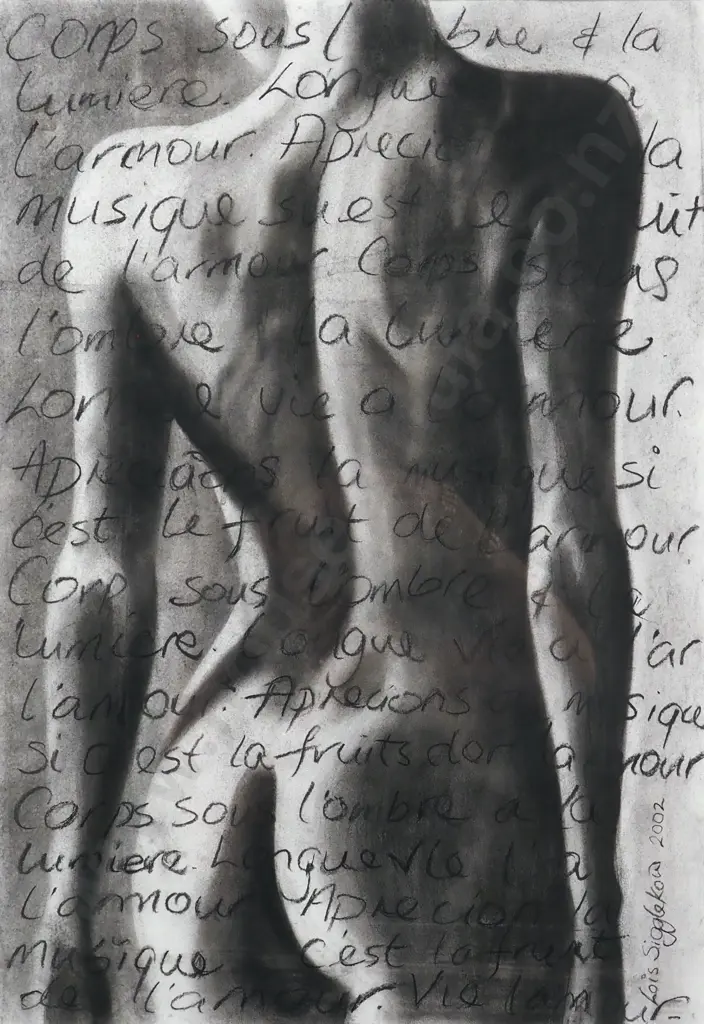 Corps sous l' bre & la
Lumiere. Longue a
l'armour. Aprecion la
musique si est le uit
de l'armour Corps sous
l'ombre & la Lumiere
Lon e vie a l'a mour.
Aprecions la musique si
c'est le fruit de l'armour.
Corp sous l'ombre & la
Lumiere. Longue vie a l'ar
l'armour. Aprecions musique
si c'est la fruits de l'a mour
Corps sous l'ombre a la
Lumiere. Longue vie l'a
l'armour Aprecion la
musique c'est la fruit
de l'armour. Vie l'amour
Lois Sigglekow 2002